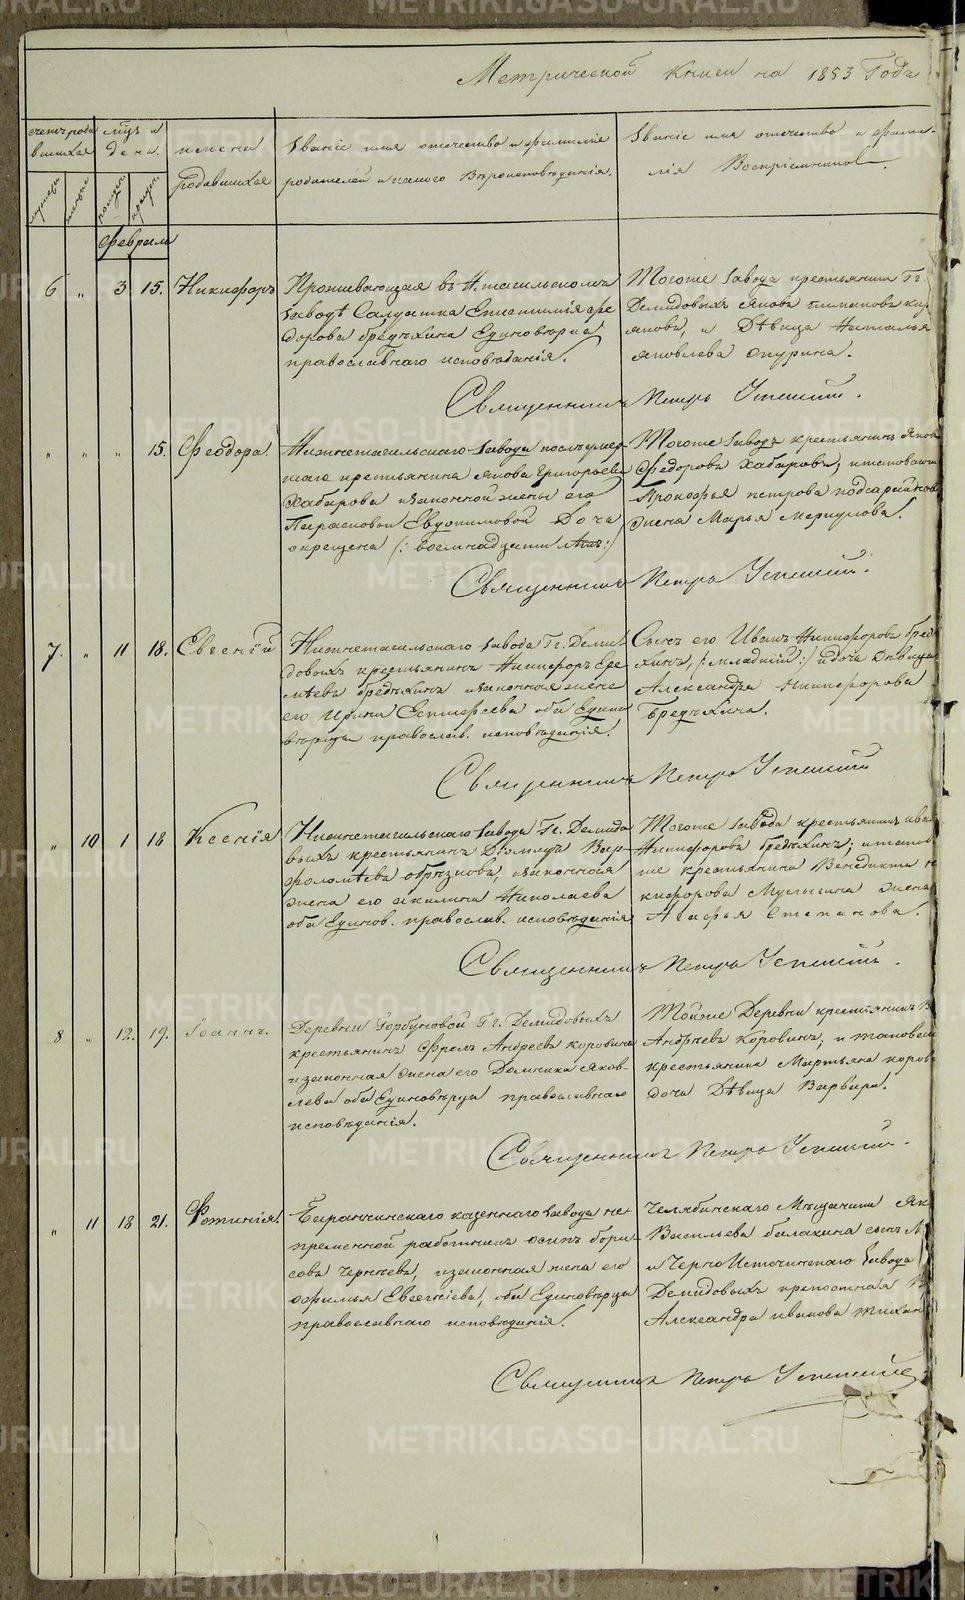 Метрической книги на 1853 Годъ
счетъ роди
вшихся
мцъ и
дена.
имена
родившихся
Званіе имя отечество и фамиліе
родителей и какого Вѣроисповѣданія.
Званіе имя отечество и фами-
лія Воспріемниковъ.
Февраля
6 „ 3 15. Никифоръ
Проживающая въ Н.тагильскомъ
заводѣ Солдатка Епистимія Фе
дорова Бредихина Единовѣрка
православнаго исповѣданія.
Тогоже завода крестьянинъ Гг.
Демидовыхъ Яковъ
и Дѣвица Наталья
Яковлева
Священникъ Петръ Успенскій.
„ „ „ 15. Феодора.
Нижнетагильскаго завода послѣ умер-
шаго крестьянина Якова Григорьева
Хабарова изаконной жены его
Парасковьи Евдокимовой Дочь
окрещена /: восемнадцати лѣтъ:/
Тогоже Заводъ крестьянинъ Яковъ
Федоровъ Хабаровъ, итаковаго
Прокофья петрова
жена Марья Меркулова.
Священникъ Петръ Успенскій.
7. „ 11 18. Евгеній
Нижнетагильскаго завода Гг. Деми-
довыхъ крестьянинъ Никифоръ Ере
мѣевъ Бредихинъ изаконная жена
его Ирина Естифеева оба Едино
вѣрцы православ. исповѣданія.
Сынъ его Иванъ Никифоровъ Бреди
хинъ, /: младшій :/ идочь Дѣвица
Александра Никифорова
Бредихина.
Священникъ Петръ Успенскій
„ 10 1 18 Ксенія
Нижнетагильскаго завода Гг. Демидо
выхъ крестьянинъ Діомидъ Вар-
фоломѣевъ изаконная
жена его Акилина Николаева
оба Единов. православ. исповѣданія
Тогоже завода крестьянинъ Иван
Никифоровъ Бредихинъ; итаков
же крестьянина Венедикта Н
кифорова Мусягина жена
Агафья Степанова.
Священникъ Петръ Успенскій.
8 „ 12. 19. Іоаннъ.
Деревни Горбуновой Гг. Демидовыхъ
крестьянинъ Фролъ Андреевъ Коровинъ
изаконная жена его Домника Яков-
лева оба Единовѣрцы православнаго
исповѣданія.
Тойже Деревни крестьянинъ В
Андрѣевъ Коровинъ, и таковаго
крестьянина Мартьяна Коров
дочь Дѣвица Варвара.
Священникъ Петръ Успенскій.
„ 11 18 21. Фотинія.
Баранчинскаго казеннаго завода не-
премѣнной работникъ Осипъ Бори-
совъ изаконная жена его
Афимья Евгеніева, оба Единовѣрцы
православнаго исповѣданія.
Челябинскаго Мѣщанина Як
Васильева балакина сынъ А
и Черноисточинскаго завода
Демидовыхъ крепостная
Александра Иванова
Священникъ Петръ Успенскій
METRIKI.GASO-URAL.RU